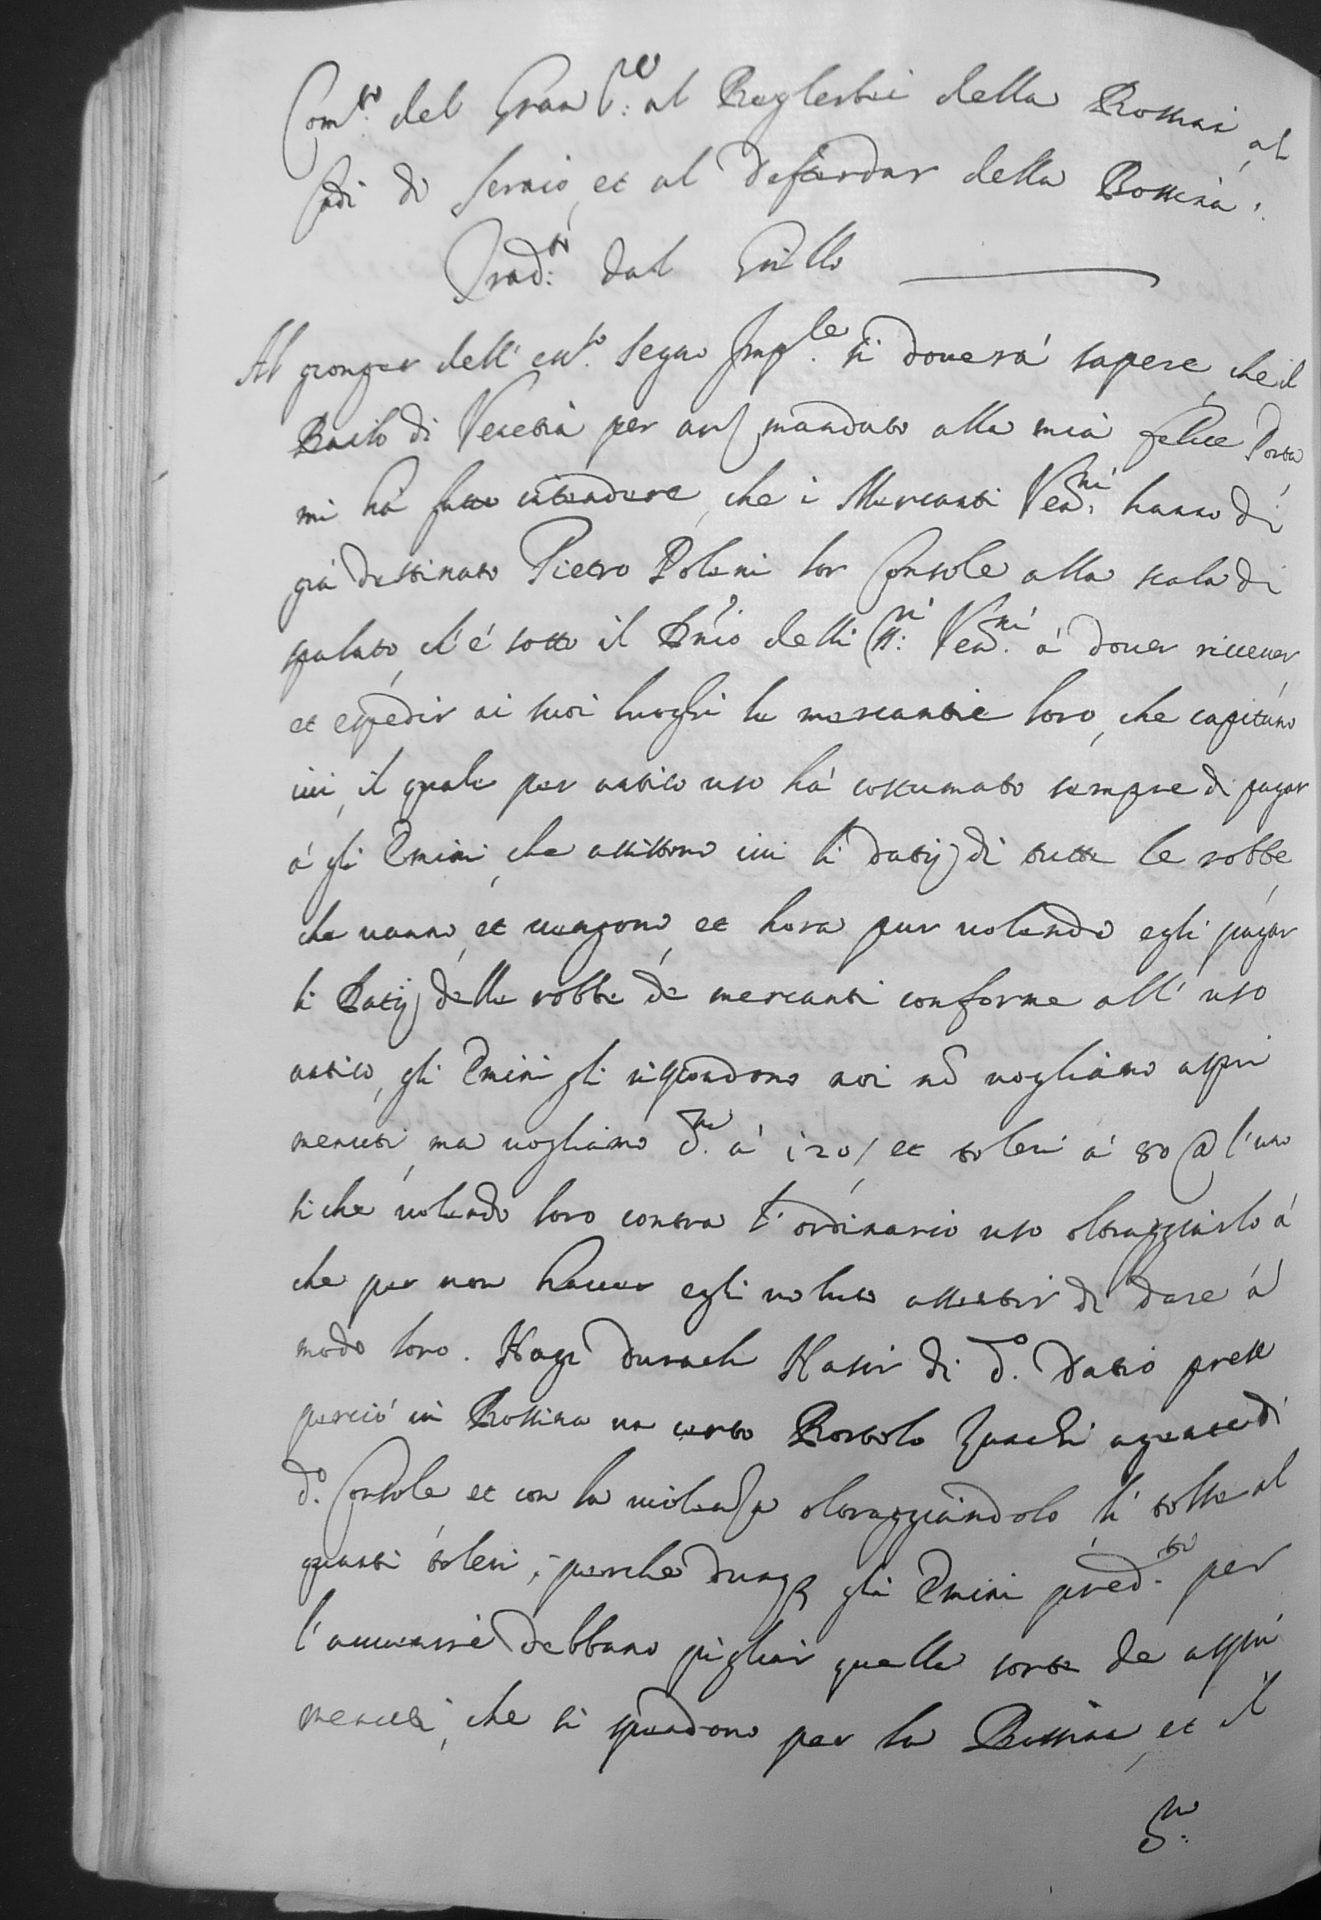 Com.to del Gran S.re al Beglerbei della Bossina, al
Cadi di Seraio, et al Defterdar della Bossina.
Trad.to dal Grillo
Al gionger dell' ecc.so segno Imp.le si doverà sapere, che il
Bailo di Venetia per arz mandato alla mia felice Porta
mi hà fatto intendere, che i Mercanti Ven.ni hanno di
già destinato Pietro Poleni lor Console alla scala di
spalato, ch'è sotto il Dnio delli SS.ri Ven.ni à dover ricever
et espedir ai suoi luoghi le mercantie loro, che capitano
ivi, il quale per antico uso hà costumato sempre di pagar
à gli Emini, che assistono ivi li datij di tutte le robbe
che vanno, et vengono, et hora pur volendo egli pagar
li Datij delle robbe de mercanti conforme all' uso
antico, gli Emini gli rispondono noi nõ vogliamo aspri
menuti, ma vogliamo d.ni à 120/ et toleri à 80 @ l'uno
si che volendo loro contra l'ordinario uso oltraggiarlo à
che per non haver egli voluto assentir di dare à
modo loro. Hagi Durach Nasir di d.o Datio prese
perciò in Bossina un certo Bortolo Zuachi agente di
d.o Console, et con la violenza oltraggiandolo li tolse al
quanti toleri, perche dunq gli Emini pred.ti per
l'avvenire debbano pigliar quelle sorte de aspri
menuti, che si spendono per la Bossina, et il
S.no